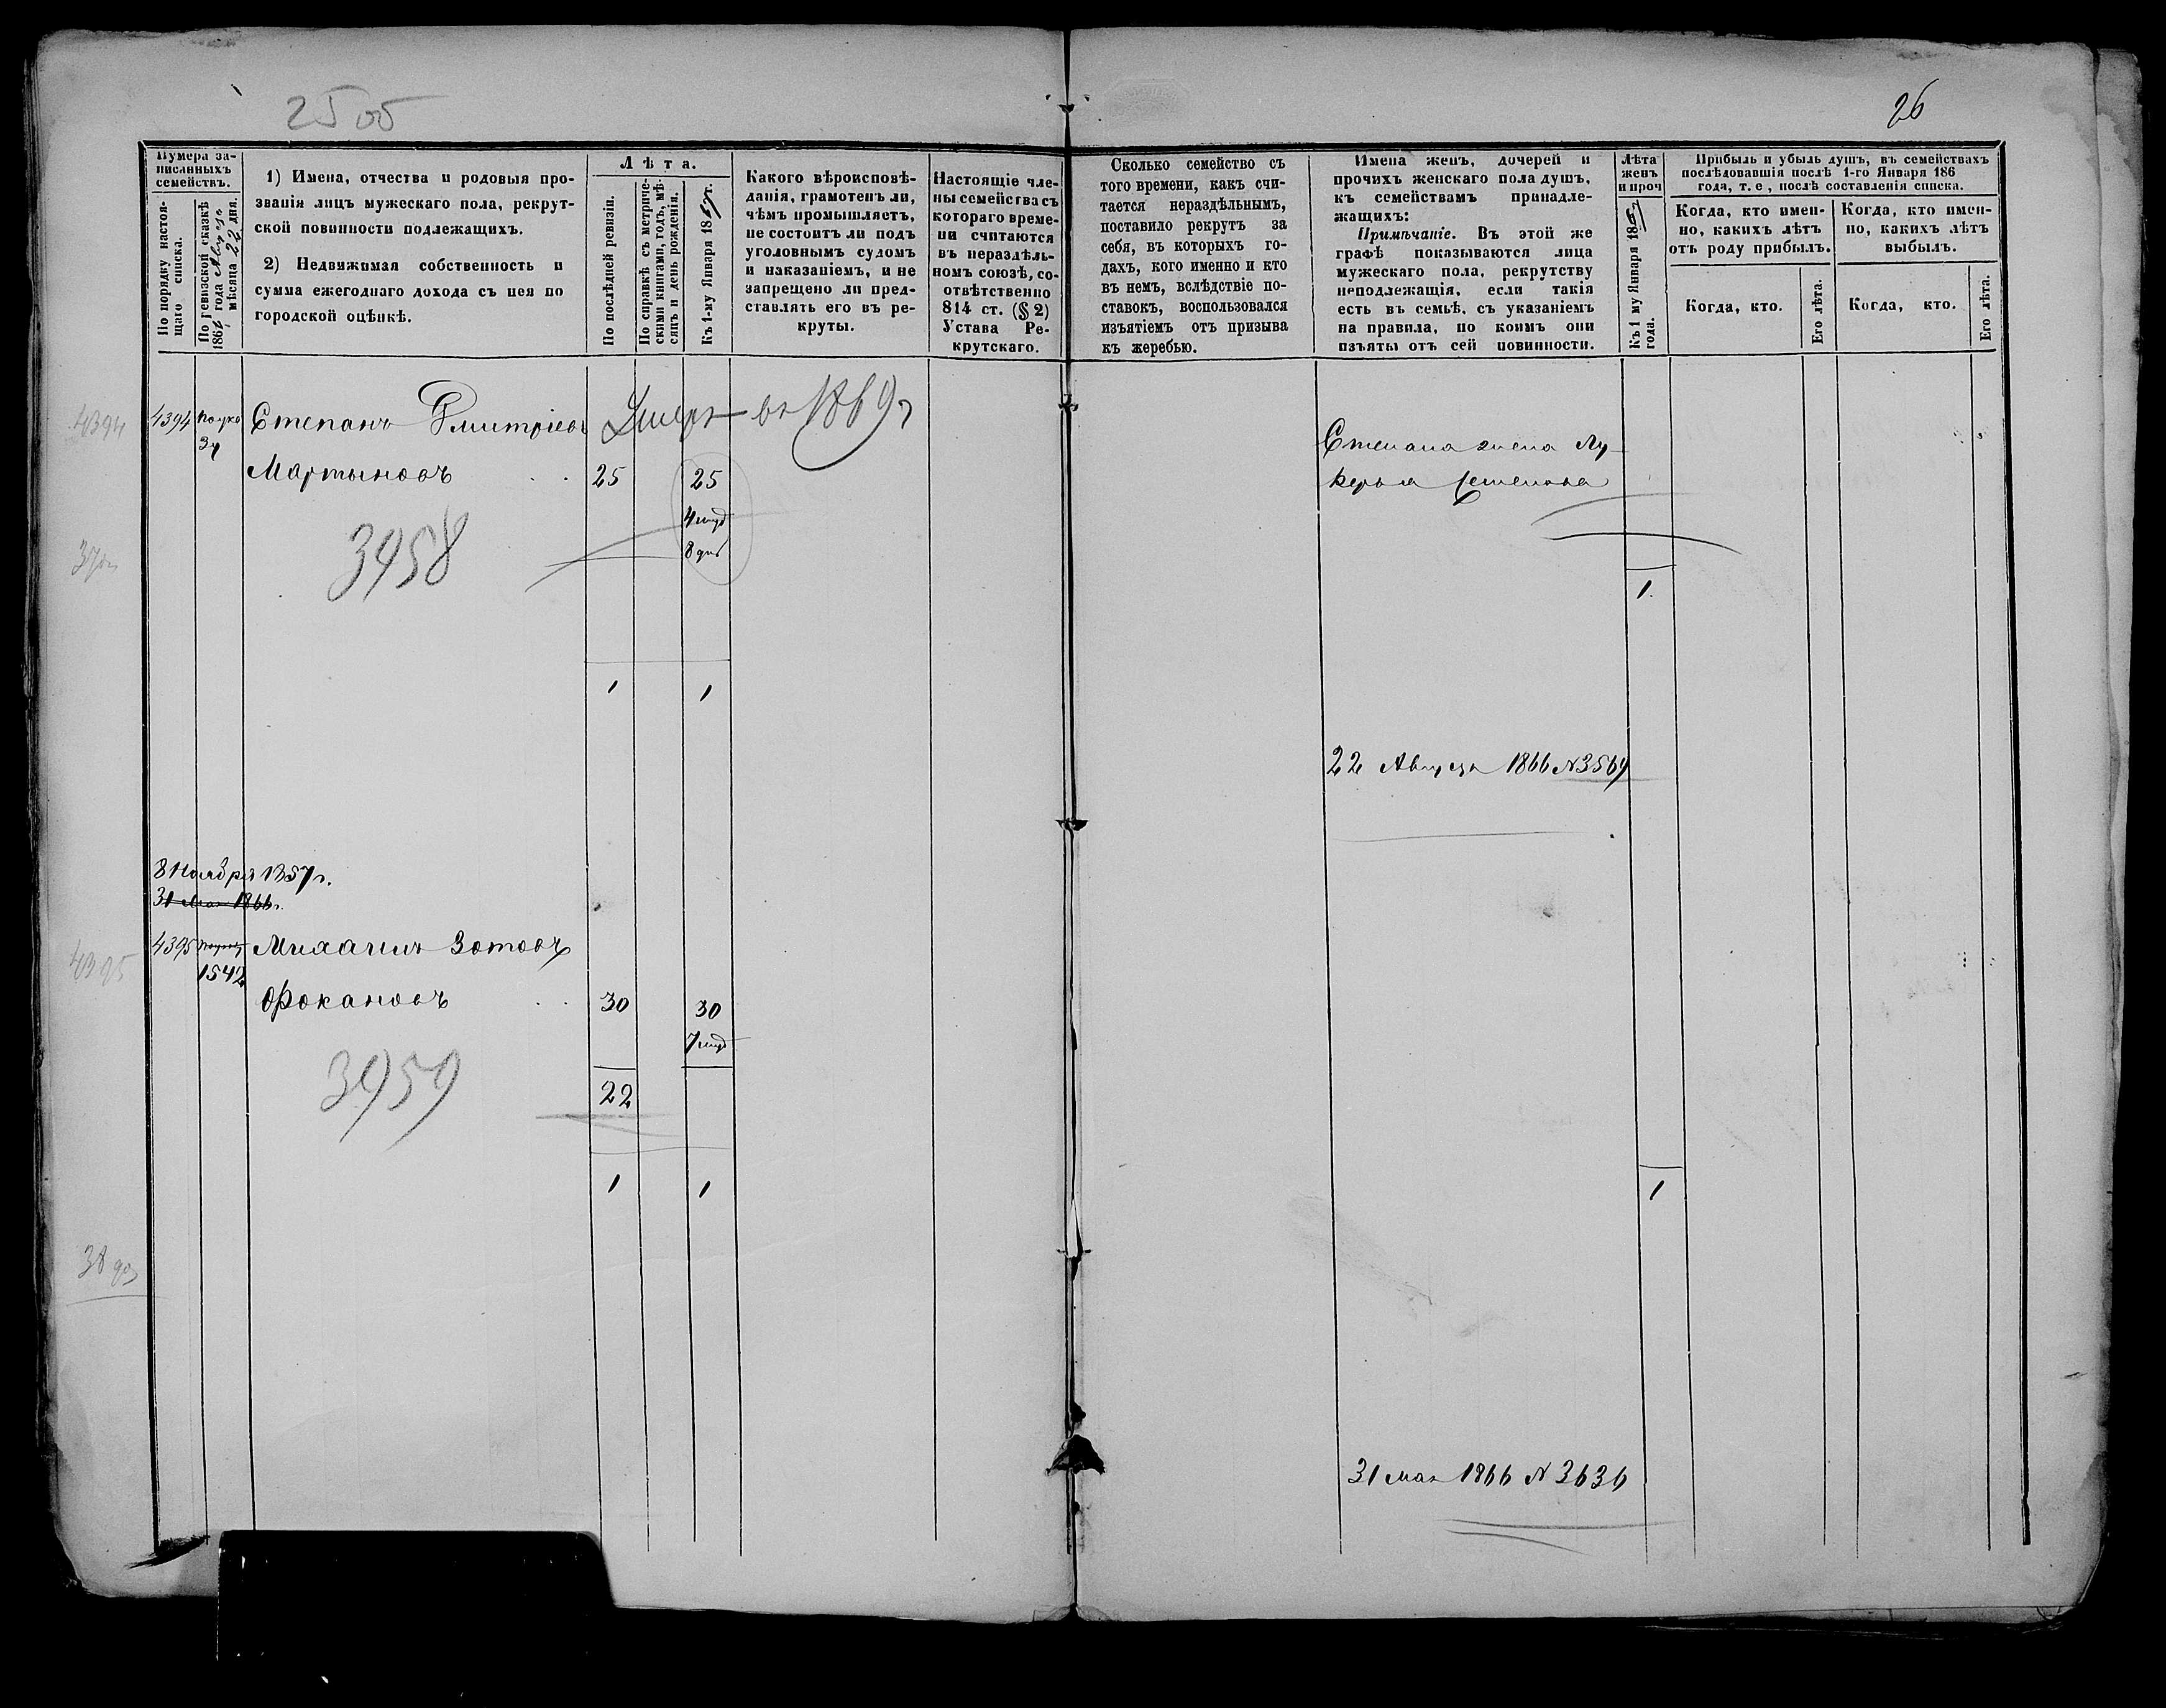 2505
26
Нумера за-
писанныхъ
семействъ.
По порядку настоя-
щаго списка.
По ревизской сказкѣ
186 года
мѣсяца 22 дня.
1) Имена, отчества и родовыя про-
званія лицъ мужескаго пола, рекрут-
ской повинности подлежащихъ.
2) Недвижимая собственность и
сумма ежегоднаго дохода съ нея по
городской оцѣнкѣ.
Лѣта.
По послѣдней ревизіи.
По справкѣ съ метриче-
скими книгами, годъ, мѣ-
сяцъ и день рожденія.
Къ 1-му Января 1867г.
Какого вѣроисповѣ-
данія, грамотенъ ли,
чѣмъ промышляетъ,
не состоитъ ли подъ
уголовнымъ судомъ
и наказаніемъ, и не
запрещено ли пред-
ставлять его въ ре-
круты.
Настоящіе чле-
ны семейства съ
котораго време-
ни считаются
въ нераздѣль-
номъ союзѣ, со-
отвѣтственно
814 ст. (§ 2)
Устава Ре-
крутскаго.
Сколько семейство съ
того времени, какъ счи-
тается нераздѣльнымъ,
поставило рекрутъ за
себя, въ которыхъ го-
дахъ, кого именно и кто
въ немъ, вслѣдствіе по-
ставокъ, воспользовался
изъятіемъ отъ призыва
къ жеребью.
Имена женъ, дочерей и
прочихъ женскаго пола душъ,
къ семействамъ принадле-
жащихъ:
Примѣчаніе. Въ этой же
графѣ показываются лица
мужескаго пола, рекрутству
неподлежащія, если такія
есть въ семьѣ, съ указаніемъ
на правила, по коимъ они
изъяты отъ сей повинности.
Лѣта
женъ
и проч
Къ 1 му Января 186
года.
Прибыль и убыль душъ, въ семействахъ
послѣдовавшія послѣ 1-го Января 186
года, т. е, послѣ составленія списка.
Когда, кто имен-
но, какихъ лѣтъ
отъ роду прибылъ.
Когда, кто имен-
но, какихъ лѣтъ
выбылъ.
Когда, кто.
Его лѣта.
Когда, кто.
Его лѣта.
4394
4394
Степанъ Дмитріевъ
Умеръ въ 1869г
Степана жена Лу-
Мартыновъ
25
25
керья Семенова
4 мѣс
8 дн
3958
1
1
1
22 Августа 1866 №3569
8 Ноября 1857г.
31 мая 1866г.
4395
4395
1542
Михаилъ Зотовъ
Фокановъ
30
30
7 мѣс
22
3959
1
1
1
31 мая 1866 № 3636